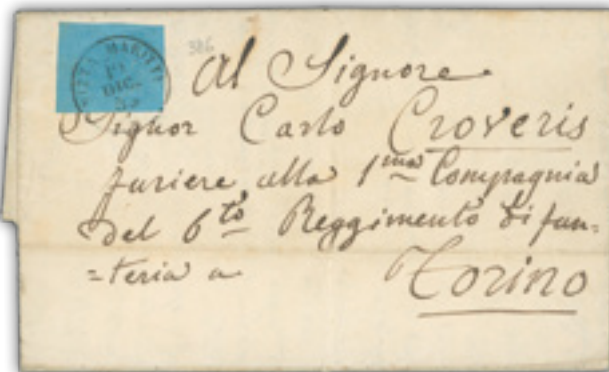 NIZZA MARITTI
19
DIC.
53
386
Al Signore
Signor Carlo Croveris
furiere alla 1ma Compagnia
del 6to Reggimento di fan=
=teria a
Torino